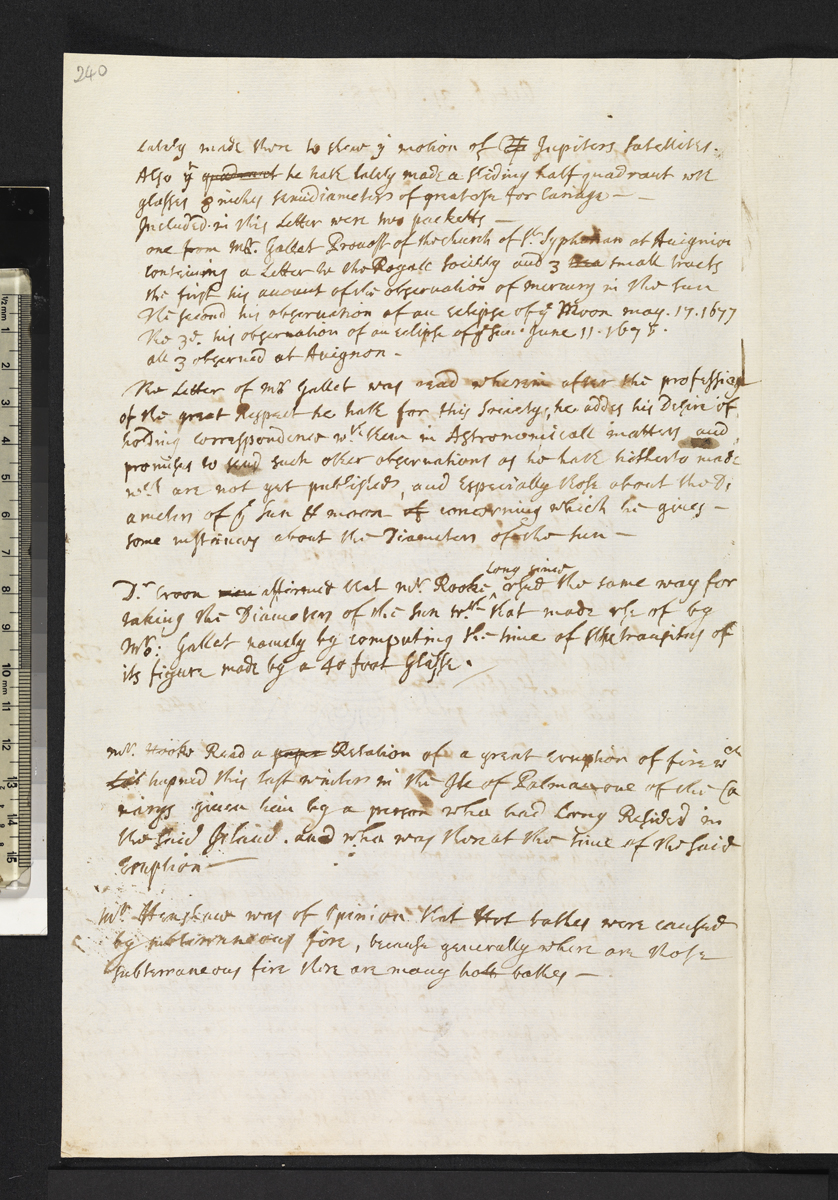 240
lately made there to shew ye motion of Jupiters Satellites.
Also yt quadrant he hath lately made a sliding half quadrant wth
glasses 8 inches semidiameters of great use for Cariage —
Included in this Letter were two packetts —
one from Mr. Gallet Provost of the church of St. Symphorian at Avignion
containing a Letter to the Royall Society and 3 small tracts
the first his account of the observation of mercury in the sun
the second his observation of an Eclipse of ye Moon may. 17. 1677
the 3d. his observation of an Eclipse of ye sun June 11. 1675.
all 3 observed at Avignon.
The Letter of Mr Gallet was read wherein after the profession
of the great Respect he hath for this Society, he addes his Desire of
holding correspondence wth them in Astronomicall matters and
promises to send such other observations as he hath hitherto made
wch are not yet published, and Especially those about the Di
ameters of ye sun & moon of concerning which he gives —
some instances about the Diameters of the sun —
Dr. Croon affirmed that Mr. Rooke long since used the same way for
taking the Diameters of the sun wth that made use of by
Mr: Gallet namely by computing the time of the transitus of
its figure made by a 40 foot Glasse.
Mr. Hooke Read a paper Relation of a great Eruption of fire wch
hapned this last winter in the Isle of Palma one of the Ca
narys given him by a person who had Long Resided in
the said Island. and who was there at the time of the said
Eruption —
Mr Henshaw was of Opinion that Hot bathes were caused
by subterraneous fire, because generally where are those
subterraneous fire there are many hott bathes —
1½ mm 1
2
3
4
5
6
7
8
9
10 mm 11
12
13
14
15